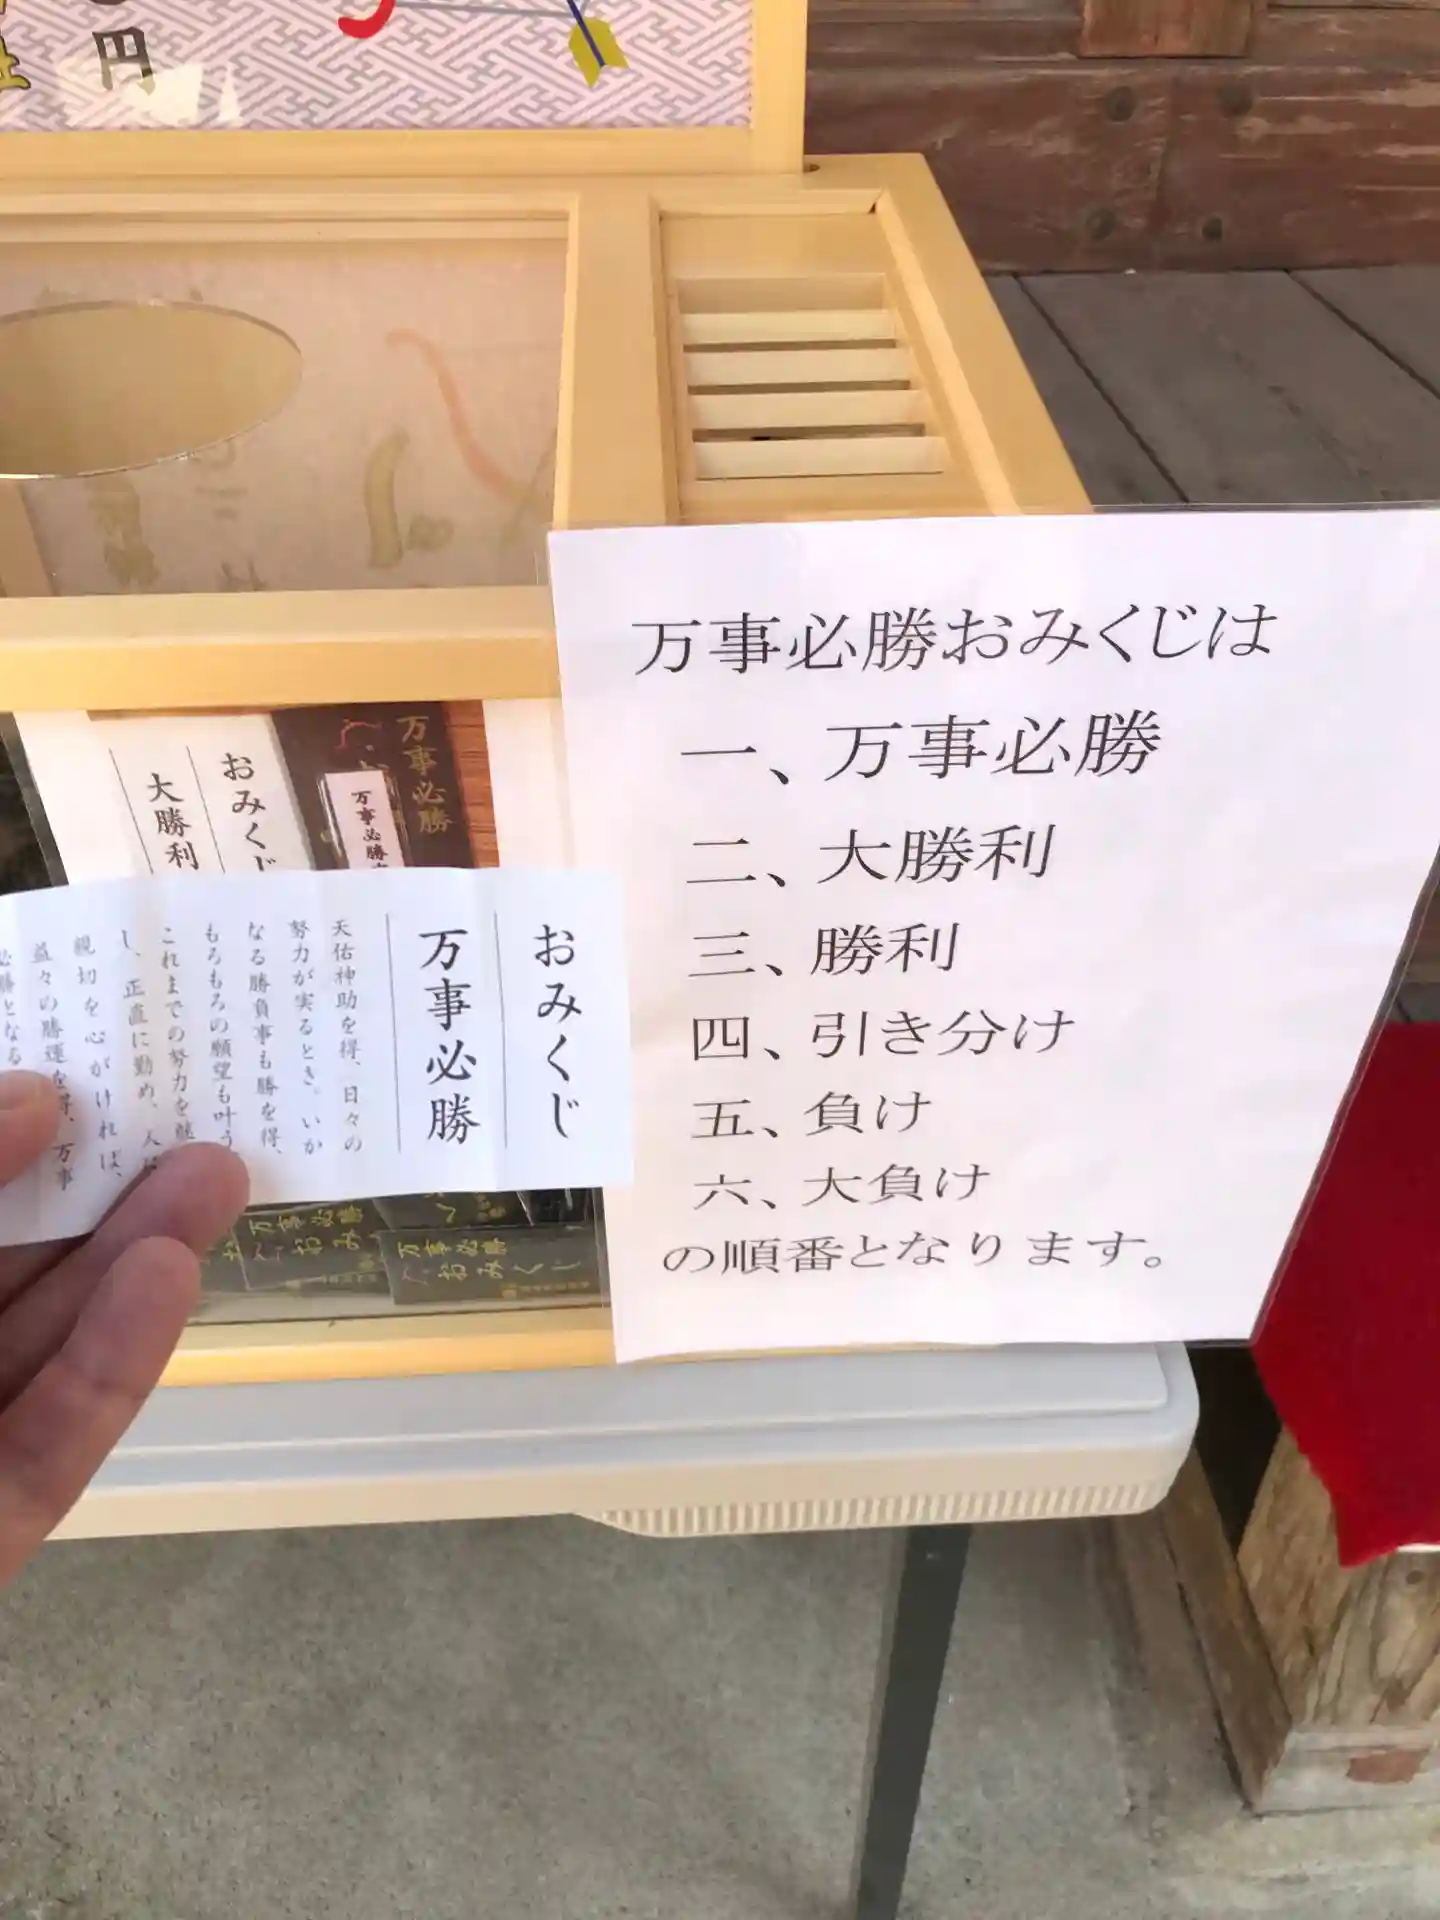 円
万事必勝おみくじは
一、万事必勝
二、大勝利
三、勝利
四、引き分け
五、負け
六、大負け
の順番となります。
万事必勝
万事必勝
おみくじ
大勝利
おみくじ
万事必勝
天佑神助を得、日々の
努力が実るとき。いか
なる勝負事も勝を得、
もろもろの願望も叶う
これまでの努力を
し、正直に勤め、人
親切を心がければ、
益々の勝運を得、万事
必勝となる
万事必勝
おみ
万事必勝
おみくじ